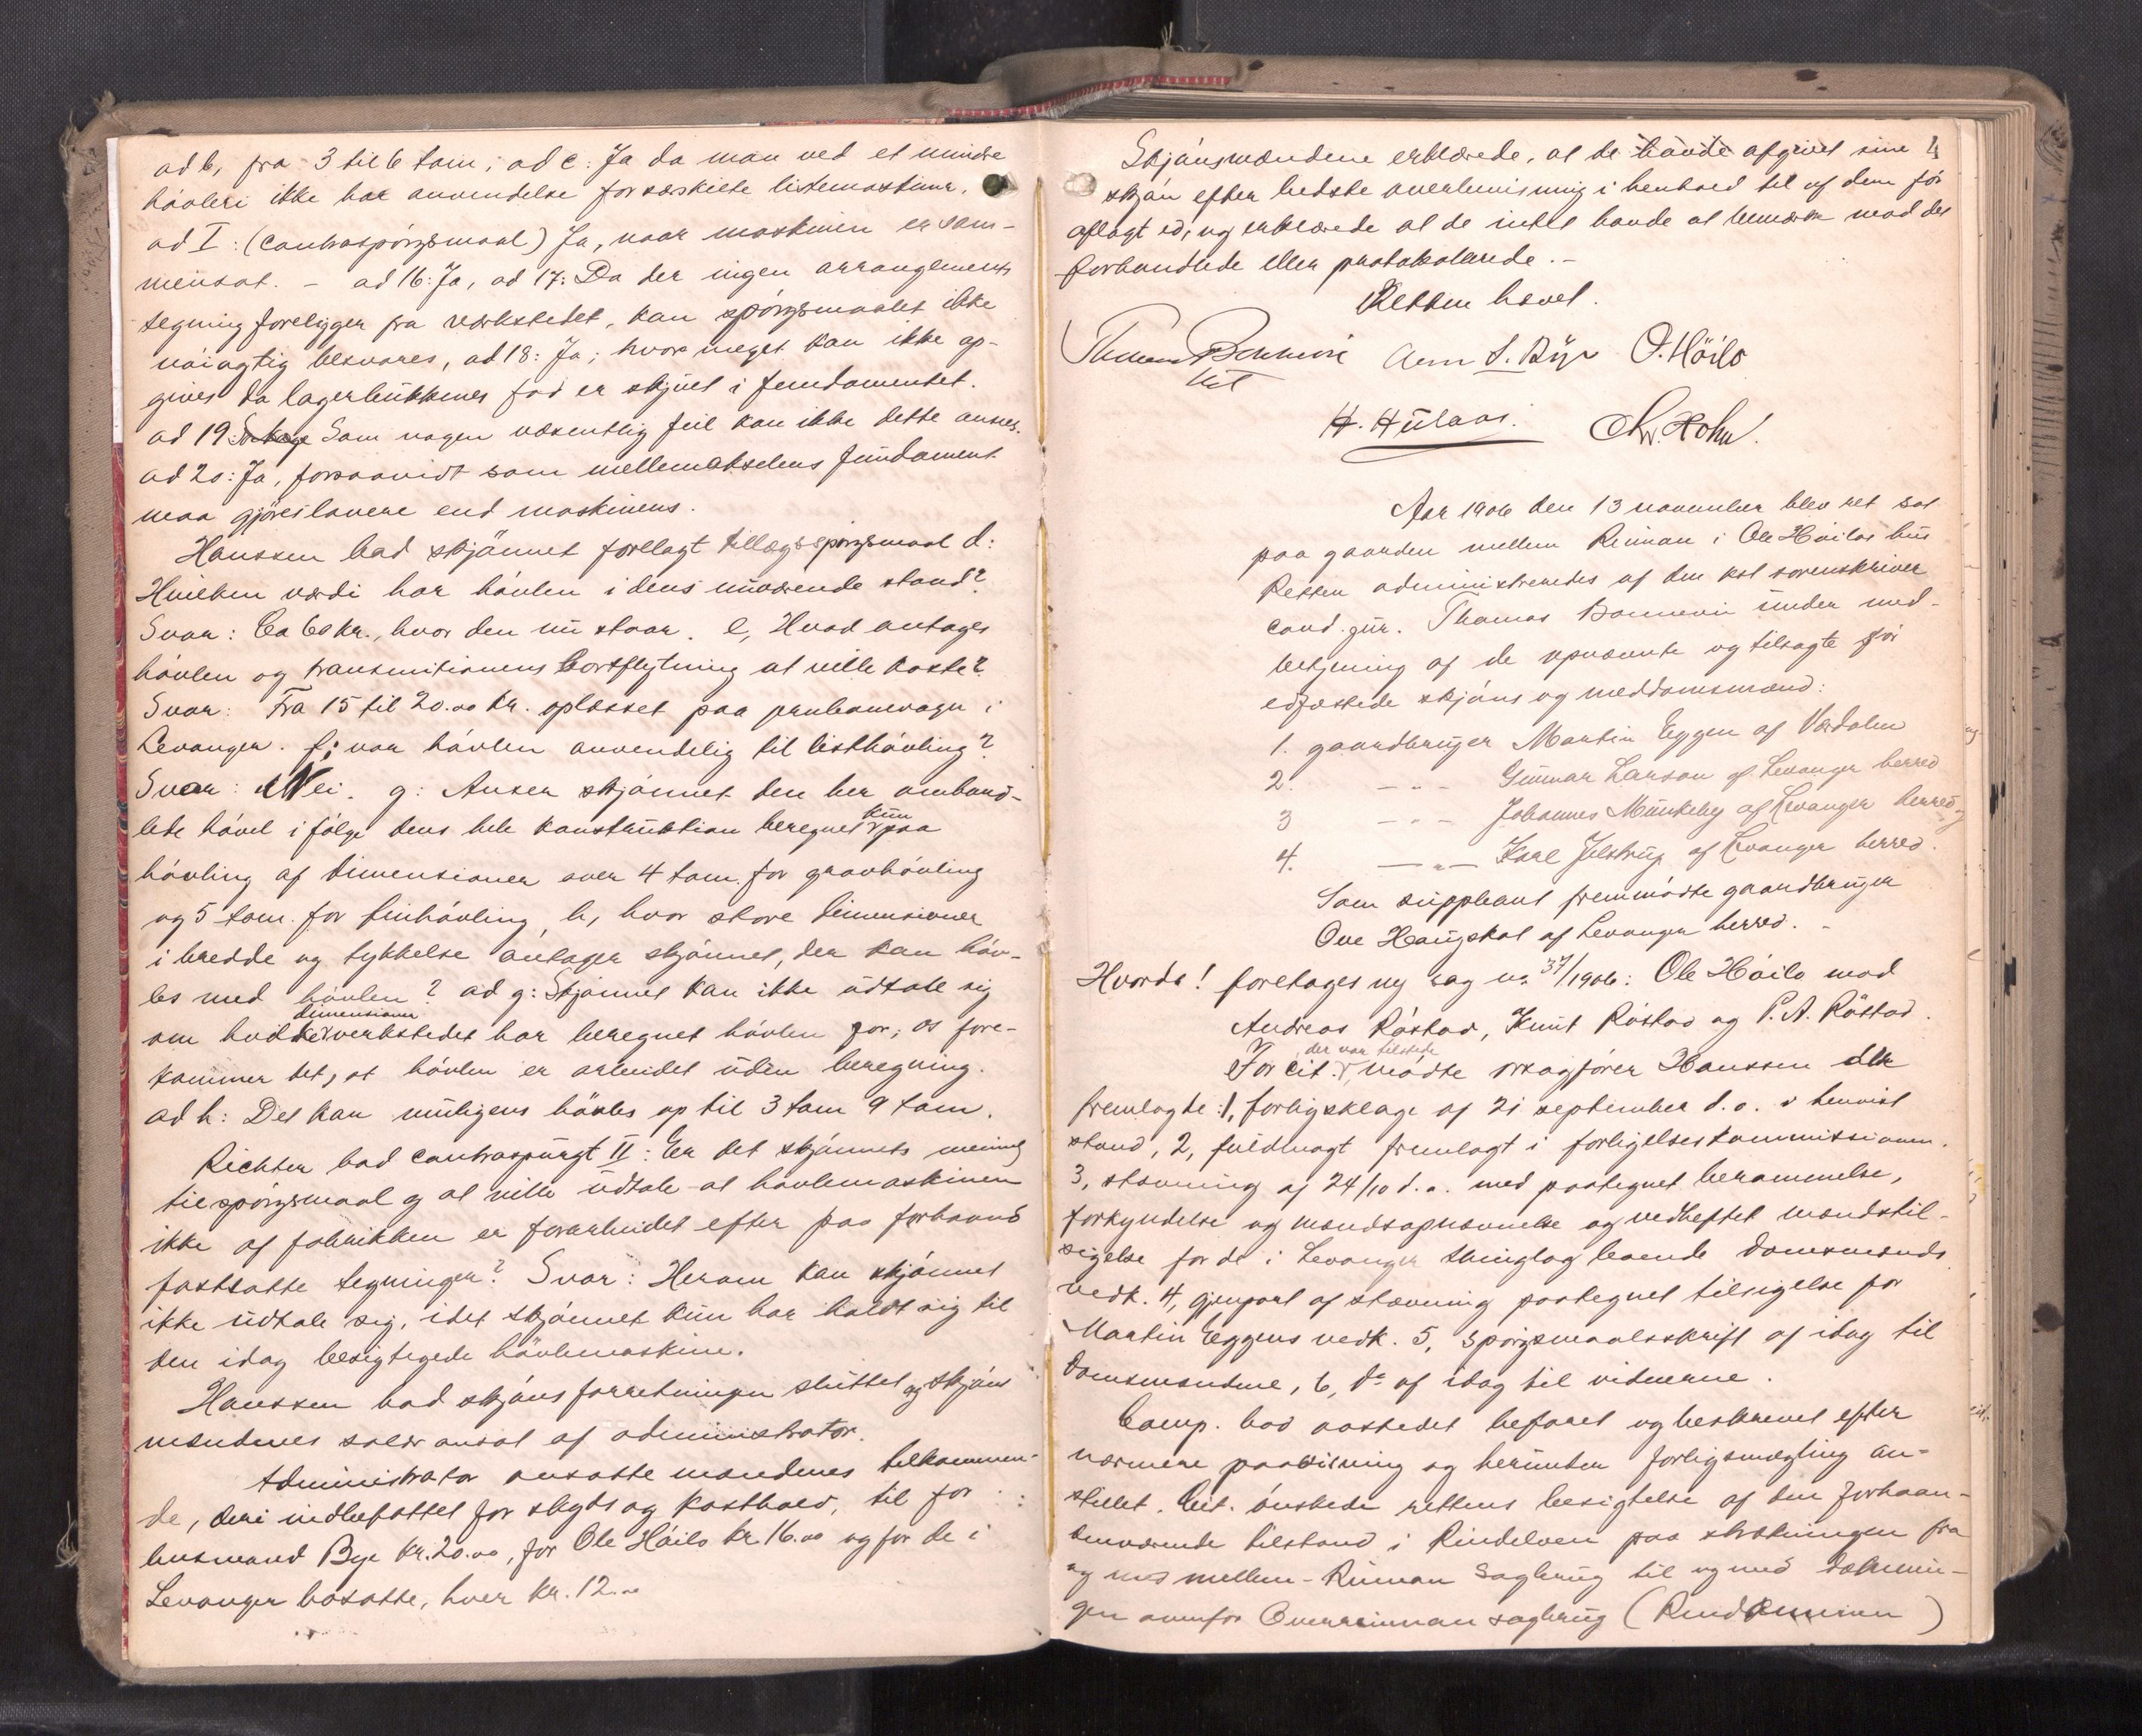 ad b, fra 3 til 6 tom; ad c: Ja da man ved et mindre
høvleri ikke har anvendelse for særskilte listemaskiner.
ad I: (contraspørgsmaal) Ja, naar maskinen er sam-
mensat. - ad 16: Ja, ad 17: Da der ingen arrangements
tegning foreligger fra værkstedet, kan spørgsmaalet ikke
nøiagtig besvares, ad 18: Ja; hvor meget kan ikke op-
gives da lagerbukkenes fod er skjult i fundamentet.
ad 19: Som nogen væsentlig feil kan ikke dette ansees.
ad 20: Ja, forsaavidt som mellemakselens fundament
maa gjøres lavere end maskinens.
Hanssen bad skjønnet forelagt tillægsspørgsmaal d:
Hvilken værdi har høvlen i dens nuværende stand?
Svar: Ca 60 kr., hvor den nu staar. e, Hvad antages
høvlen og transmitionens bortflytning at ville koste?
Svar: Fra 15 til 20.00 kr. oplæsset paa jernbanevogn i
Levanger. f; var høvlen anvendelig til listhøvling?
Svar: Nei. g: Anser skjønnet den her omhand-
lede høvel ifølge dens hele konstruktion beregnet kun paa
høvling af dimensioner over 4 tom. for grovhøvling
og 5 tom. for finhøvling, h, hvor store dimensioner
i bredde og tykkelse antager skjønnet, der kan høv-
les med høvlen? ad g: Skjønnet kan ikke udtale sig
om hvilke dimensioner verkstedet har beregnet høvlen for; os fore-
kommer det, at høvlen er arbeidet uden beregning.
ad h: Det kan muligens høvles op til 3 tom 9 tom.
Richter bad contraspurgt II: Er det skjønnets mening
til spørgsmaal g at ville udtale at høvlemaskinen
ikke af fabrikken er forarbeidet efter paa forhaand
fastsatte tegninger? Svar: Herom kan skjønnet
ikke udtale sig, idet skjønnet kun har holdt sig til
den idag besigtigede høvlemaskine.
Hanssen bad skjønsforretningen sluttet og skjøns
mændenes salær ansat af administrator.
Administrator ansatte mændenes tilkommen-
de, deri indbefattet for skyds og kosthold, til for
husmand Bye kr. 20.00, for Ole Høilo kr 16.00 og for de i
Levanger bosatte, hver kr. 12.00
Skjønsmændene erklærede, at de havde afgivet sine 4
skjøn efter bedste overbevisning i henhold til af dem før
aflagt ed, og erklærede at de intet havde at bemærke mod det
forhandlede eller protokollerede. -
Retten hævet.
Thomas Bonnevie Arn S. Bye O. Höilo
kst
H. Hülaas. Chr. Hohn.
Aar 1906 den 13 november blev ret sat
paa gaarden mellem Rinnan i Ole Høilos hus
Retten administreredes af den kst sorenskriver
cand. jur. Thomas Bonnevie under med-
betjening af de opnævnte og tilsagte før
edfæstede skjøns og meddomsmænd:
1. gaardbruger Martin Eggen af Værdalen
2. - " - Gunnar Larsen af Levanger herred
3 - " - Johannes Munkeby af Levanger herred og
4. - " - Karl Jelstrup af Levanger herred.
Som suppleant fremmødte gaardbruger
Ove Haugskot af Levanger herred. -
Hvorda! foretages ny sag no 37/1906: Ole Høilo mod
Andreas Røstad, Knut Røstad og P. A. Røstad.
For cit. der var tilstede, mødte orsagfører Hanssen der
fremlagte: 1, forligsklage af 21 september d. a. i henvist
stand, 2, fuldmagt fremlagt i forligelseskommissionen.
3, stævning af 24/10 d. a. med paategnet berammelse,
forkyndelse og mandsopnævnelse og vedheftet mandstil-
sigelse for de i Levanger thinglag boende domsmænds
vedk. 4, gjenpart af stævning paategnet tilsigelse for
Martin Eggens vedk. 5, spørgsmaalsskrift af idag til
domsmændene, 6, do af idag til vidnerne.
Comp. bad aastedet befaret og beskrevet efter
nærmere paavisning og herunder forligsmægling an-
stillet. Cit. ønskede rettens besigtelse af den forhaan-
denværende tilstand i Rindelven paa strækningen fra
og med mellem-Rinnan sagbrug til og med dæmnin-
gen ovenfor Overrinnan sagbrug (